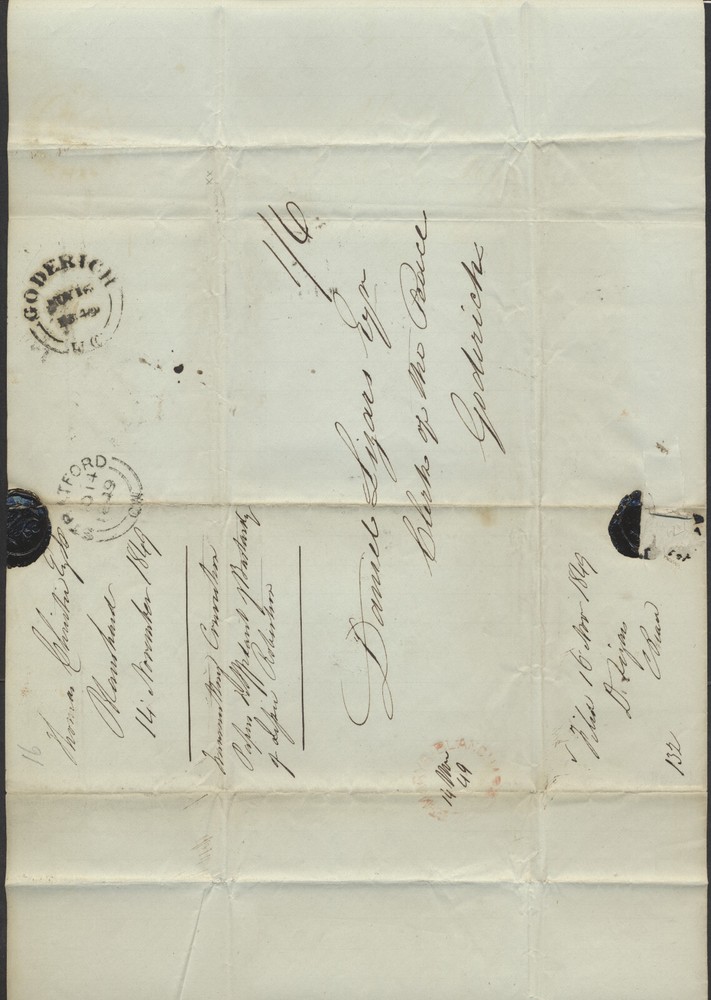 16
Thomas Christie Esq
Blanshard
14 November 1849
Conviction
Papers &
of Robertson
GODERICH
NOV 16
1849
U.C.
STRATFORD
14
1849
C.W.
1/6
Daniel Lizars Esqr
Clerk of the Peace
Goderich
14 Nov
49
Filed 16 Nov 1849
D. Lizars
C Peace
132